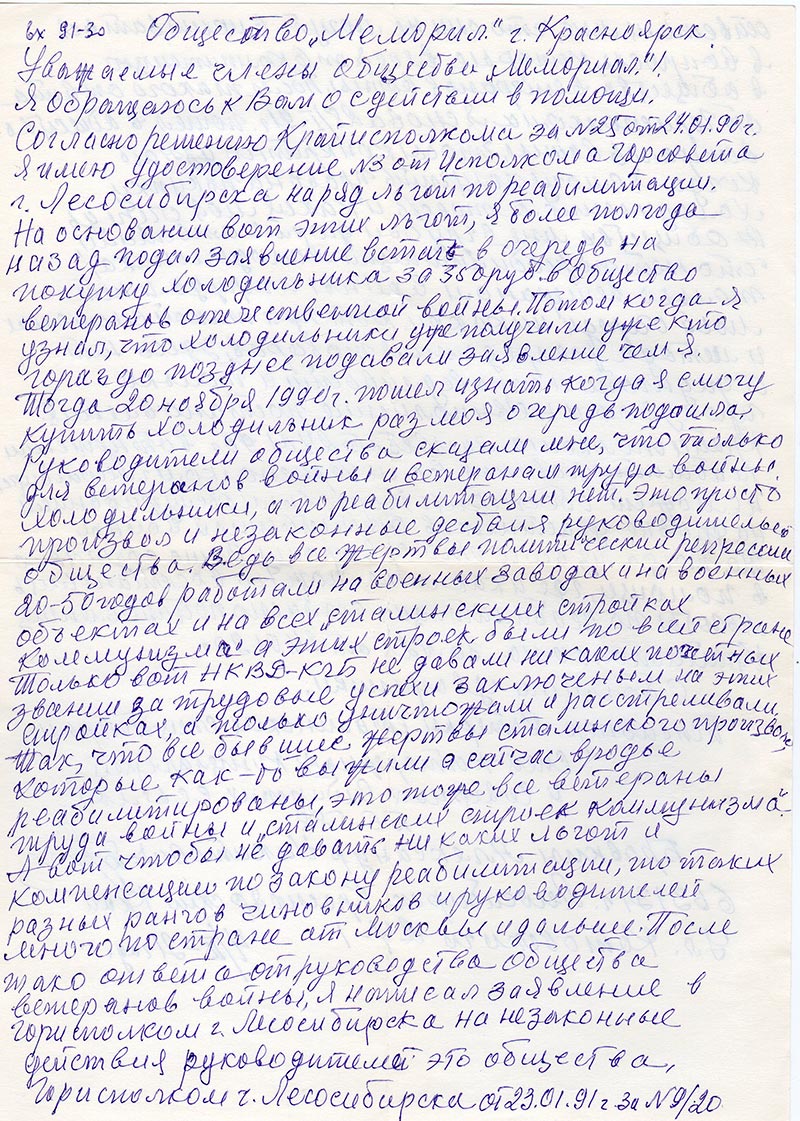 вх 91-30 Общество „Мемориал." г. Красноярск.
Уважаемые члены общества „Мемориал."!
Я обращаюсь к Вам о содействии в помощи.
Согласно решению Крайисполкома за №25 от 24.01.90 г.
я имею удостоверение №3 от Исполкома Горсовета
г. Лесосибирска на ряд льгот по реабилитации.
На основании вот этих льгот, я более полгода
назад подал заявление встать в очередь на
покупку холодильника за 350 руб. в общество
ветеранов отечественной войны. Потом когда я
узнал, что холодильники уже получили уже кто
гораздо позднее подавали заявление чем я.
Тогда 20 ноября 1990 г. пошел узнать когда я смогу
купить холодильник раз моя очередь подошла,
руководители общества сказали мне, что только
для ветеранов войны и ветеранам труда войны
холодильники, а по реабилитации нет. Это просто
произвол и незаконные дествия руководительей
общества. Ведь все жертвы политический репрессии
20-50 годов работали на военных заводах и на военных
объектах и на всех „сталинских стройках
коммунизма" а этих строек были по всей стране
только вот НКВД-КГБ не давали ни каких почетных
звании за трудовые успехи заключеным на этих
стройках, а только уничтожали и расстреливали,
так, что все бывшие жертвы сталинского произвола
которые как-то выжили а сейчас вродье
реабилитированы, это тоже все ветераны
труда войны и „сталинский строек коммунизма".
А вот чтобы не давать ни каких льгот и
компенсации по закону реабилитации, то таких
разных рангов чиновников и руководителей
много по стране от Москвы и дальше. После
тако ответа от руководства общества
ветеранов войны, я написал заявление в
горисполком г. Лесосибирска на незаконные
действия руководителей это общества,
Горисполком г. Лесосибирска от 23.01.91 г. за №9/20